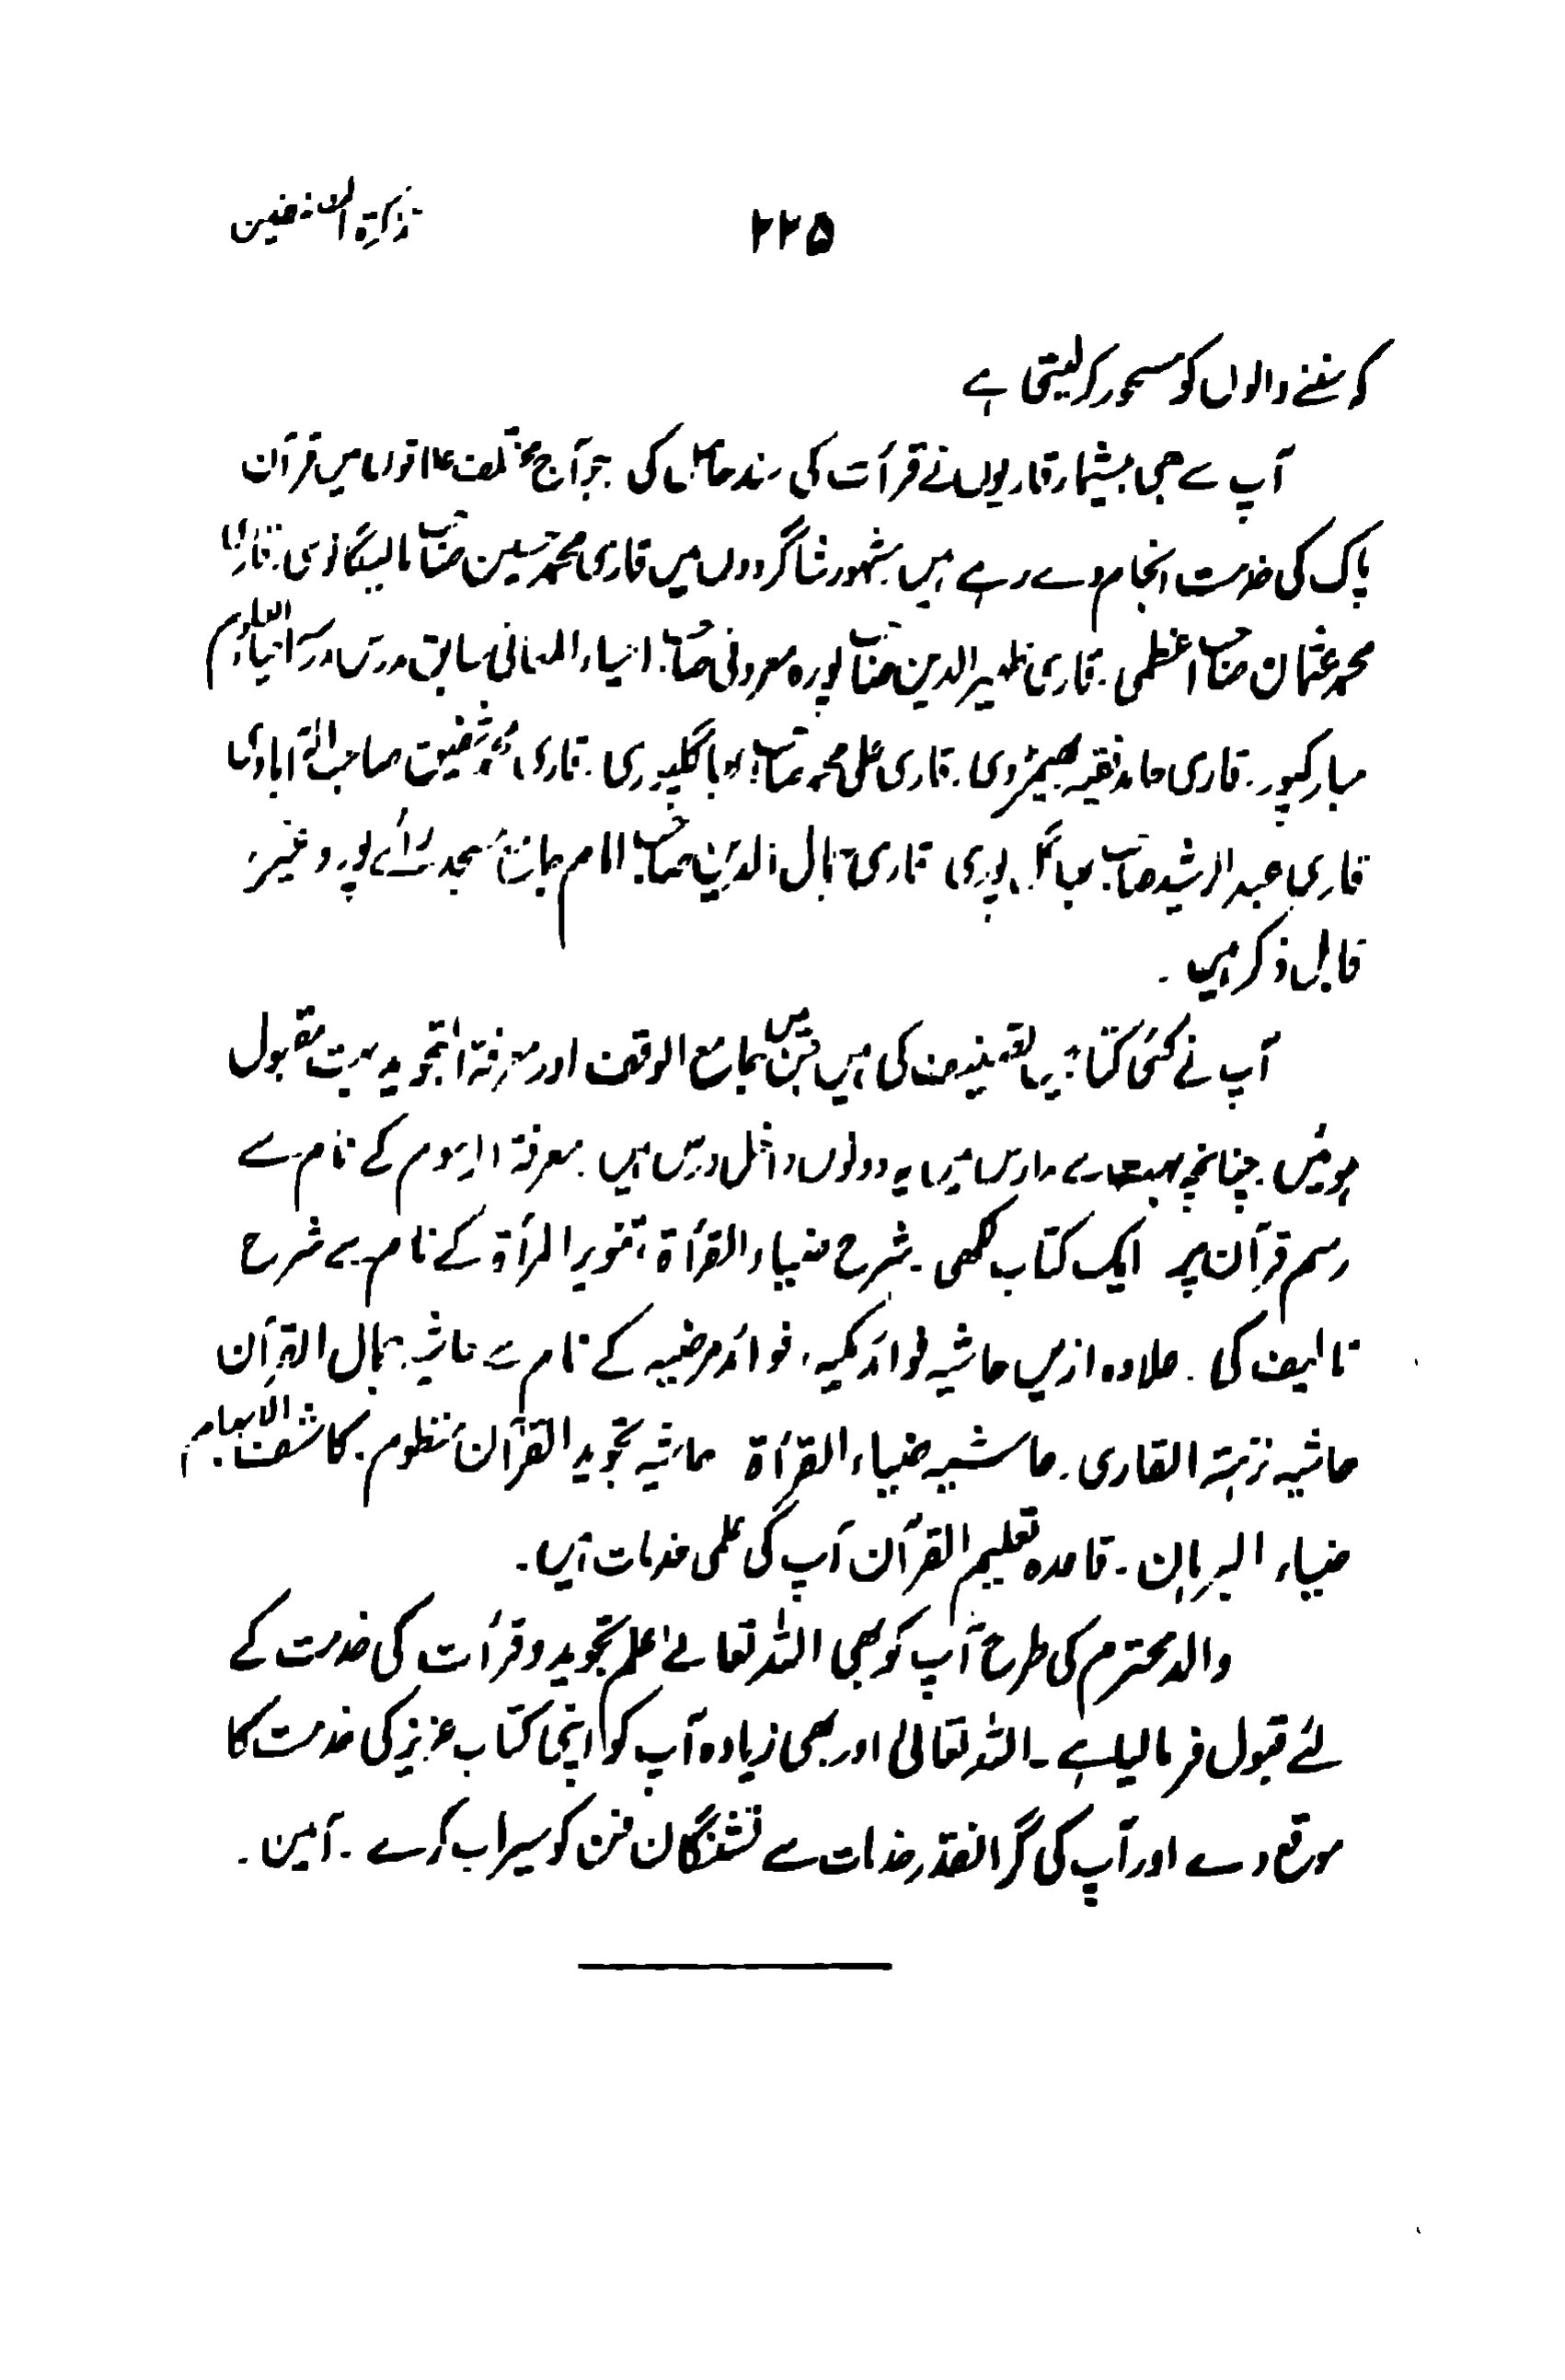 ۲۲۵
کہ سننے والوں کو مسحور کر لیتی ہے
آپ سے بھی بیشمار قاریوں نے قرأت کی سند حاصل کی جو آج مختلف علاقوں میں قرآن
پاک کی خدمت انجام دے رہے ہیں مشہور شاگردوں میں قاری محمد حسین صاحب مالیگانوی . قاری
محمد عثمان صاحب اعظمی . قاری ظہیر الدین صاحب پورہ معروفی سابق مدرس مدرسہ احیاء العلوم
مبارکپور . قاری حامد فقیہ بھیمڑوی . قاری علی محمد صاحب بھاگلپوری . قاری محمد شفیق صاحب الہ آبادی
قاری عبد الرشید صاحب بھاگل پوری قاری جمال الدین صاحب امام جامع مسجد سرائے پور وغیرہ
قابل ذکر ہیں .
آپ نے کئی کتابیں تصنیف کی ہیں جن میں جامع الوقف اور معرفۃ التجوید بہت مقبول
ہوئیں . چنانچہ بہت سے مدارس میں یہ دونوں داخل درس ہیں . معرفۃ الرسوم کے نام سے
رسم قرآن پر ایک کتاب لکھی . شرح ضیاء القرأۃ ، تنویر المرأۃ کے نام سے شرح
تالیف کی . علاوہ ازیں حاشیہ فوائد مکیہ ، فوائد مرضیہ کے نام سے حاشیہ جمال القرآن
حاشیہ نزہتہ القاری . حاشیہ ضیاء القرأۃ حاشیہ تجوید القرآن منظوم . کاشف الابہام .
ضیاء البرہان . قاعدہ تعلیم القرآن آپ کی علمی خدمات ہیں .
والد محترم کی طرح آپ کو بھی اللہ تعالےٰ علم تجوید و قرأت کی خدمت کے
لئے قبول فرمالیا ہے ـ اللہ تعالیٰ اور بھی زیادہ آپ کو اپنی کتاب عزیز کی خدمت کا
موقع دے اور آپ کی گرانقدر خدمات سے تشنگان فن کو سیراب کرے ـ آمین .